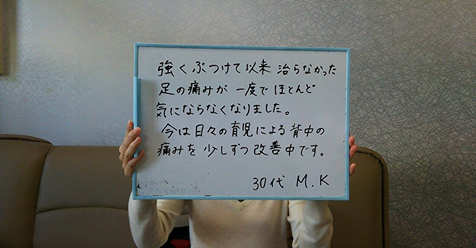 強くぶつけて以来 治らなかった
足の痛みが 一度で ほとんど
気にならなくなりました。
今は日々の育児による 背中の
痛みを 少しずつ 改善中です。
30代 M.K